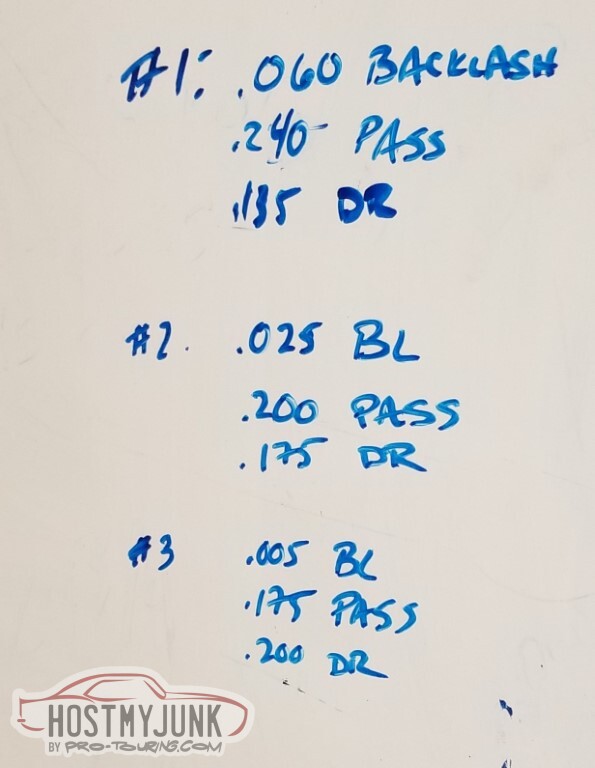 #1: .060 BACKLASH
.240 PASS
.135 DR
#2. .025 BL
.200 PASS
.175 DR
#3 .005 BL
.175 PASS
.200 DR
HOSTMYJUNK
BY PRO-TOURING.COM